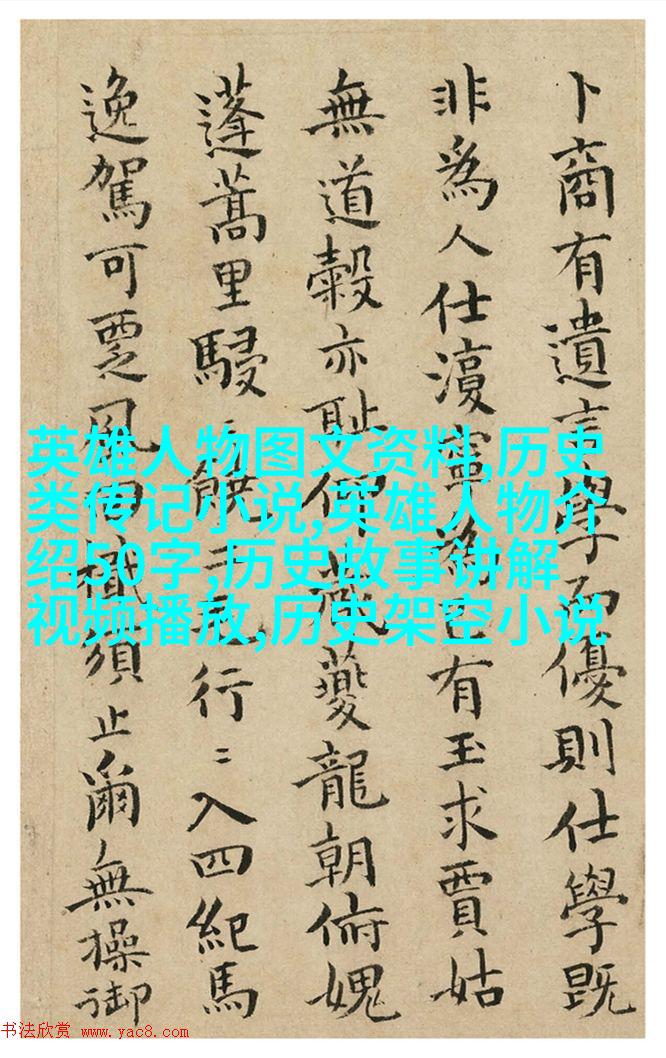 卜商有遺言學而優則仕學既
非為人仕寧為有玉求賈姑
無道穀亦恥夔龍朝俯媿
蓬蒿里駸行〻入四紀馬
逸駕可覂風須止爾無操御
英雄人物图文资料,历史
类传记小说,英雄人物介
绍50字,历史故事讲解
视频播放,历史架空小说
书法欣赏 www.yac8.com